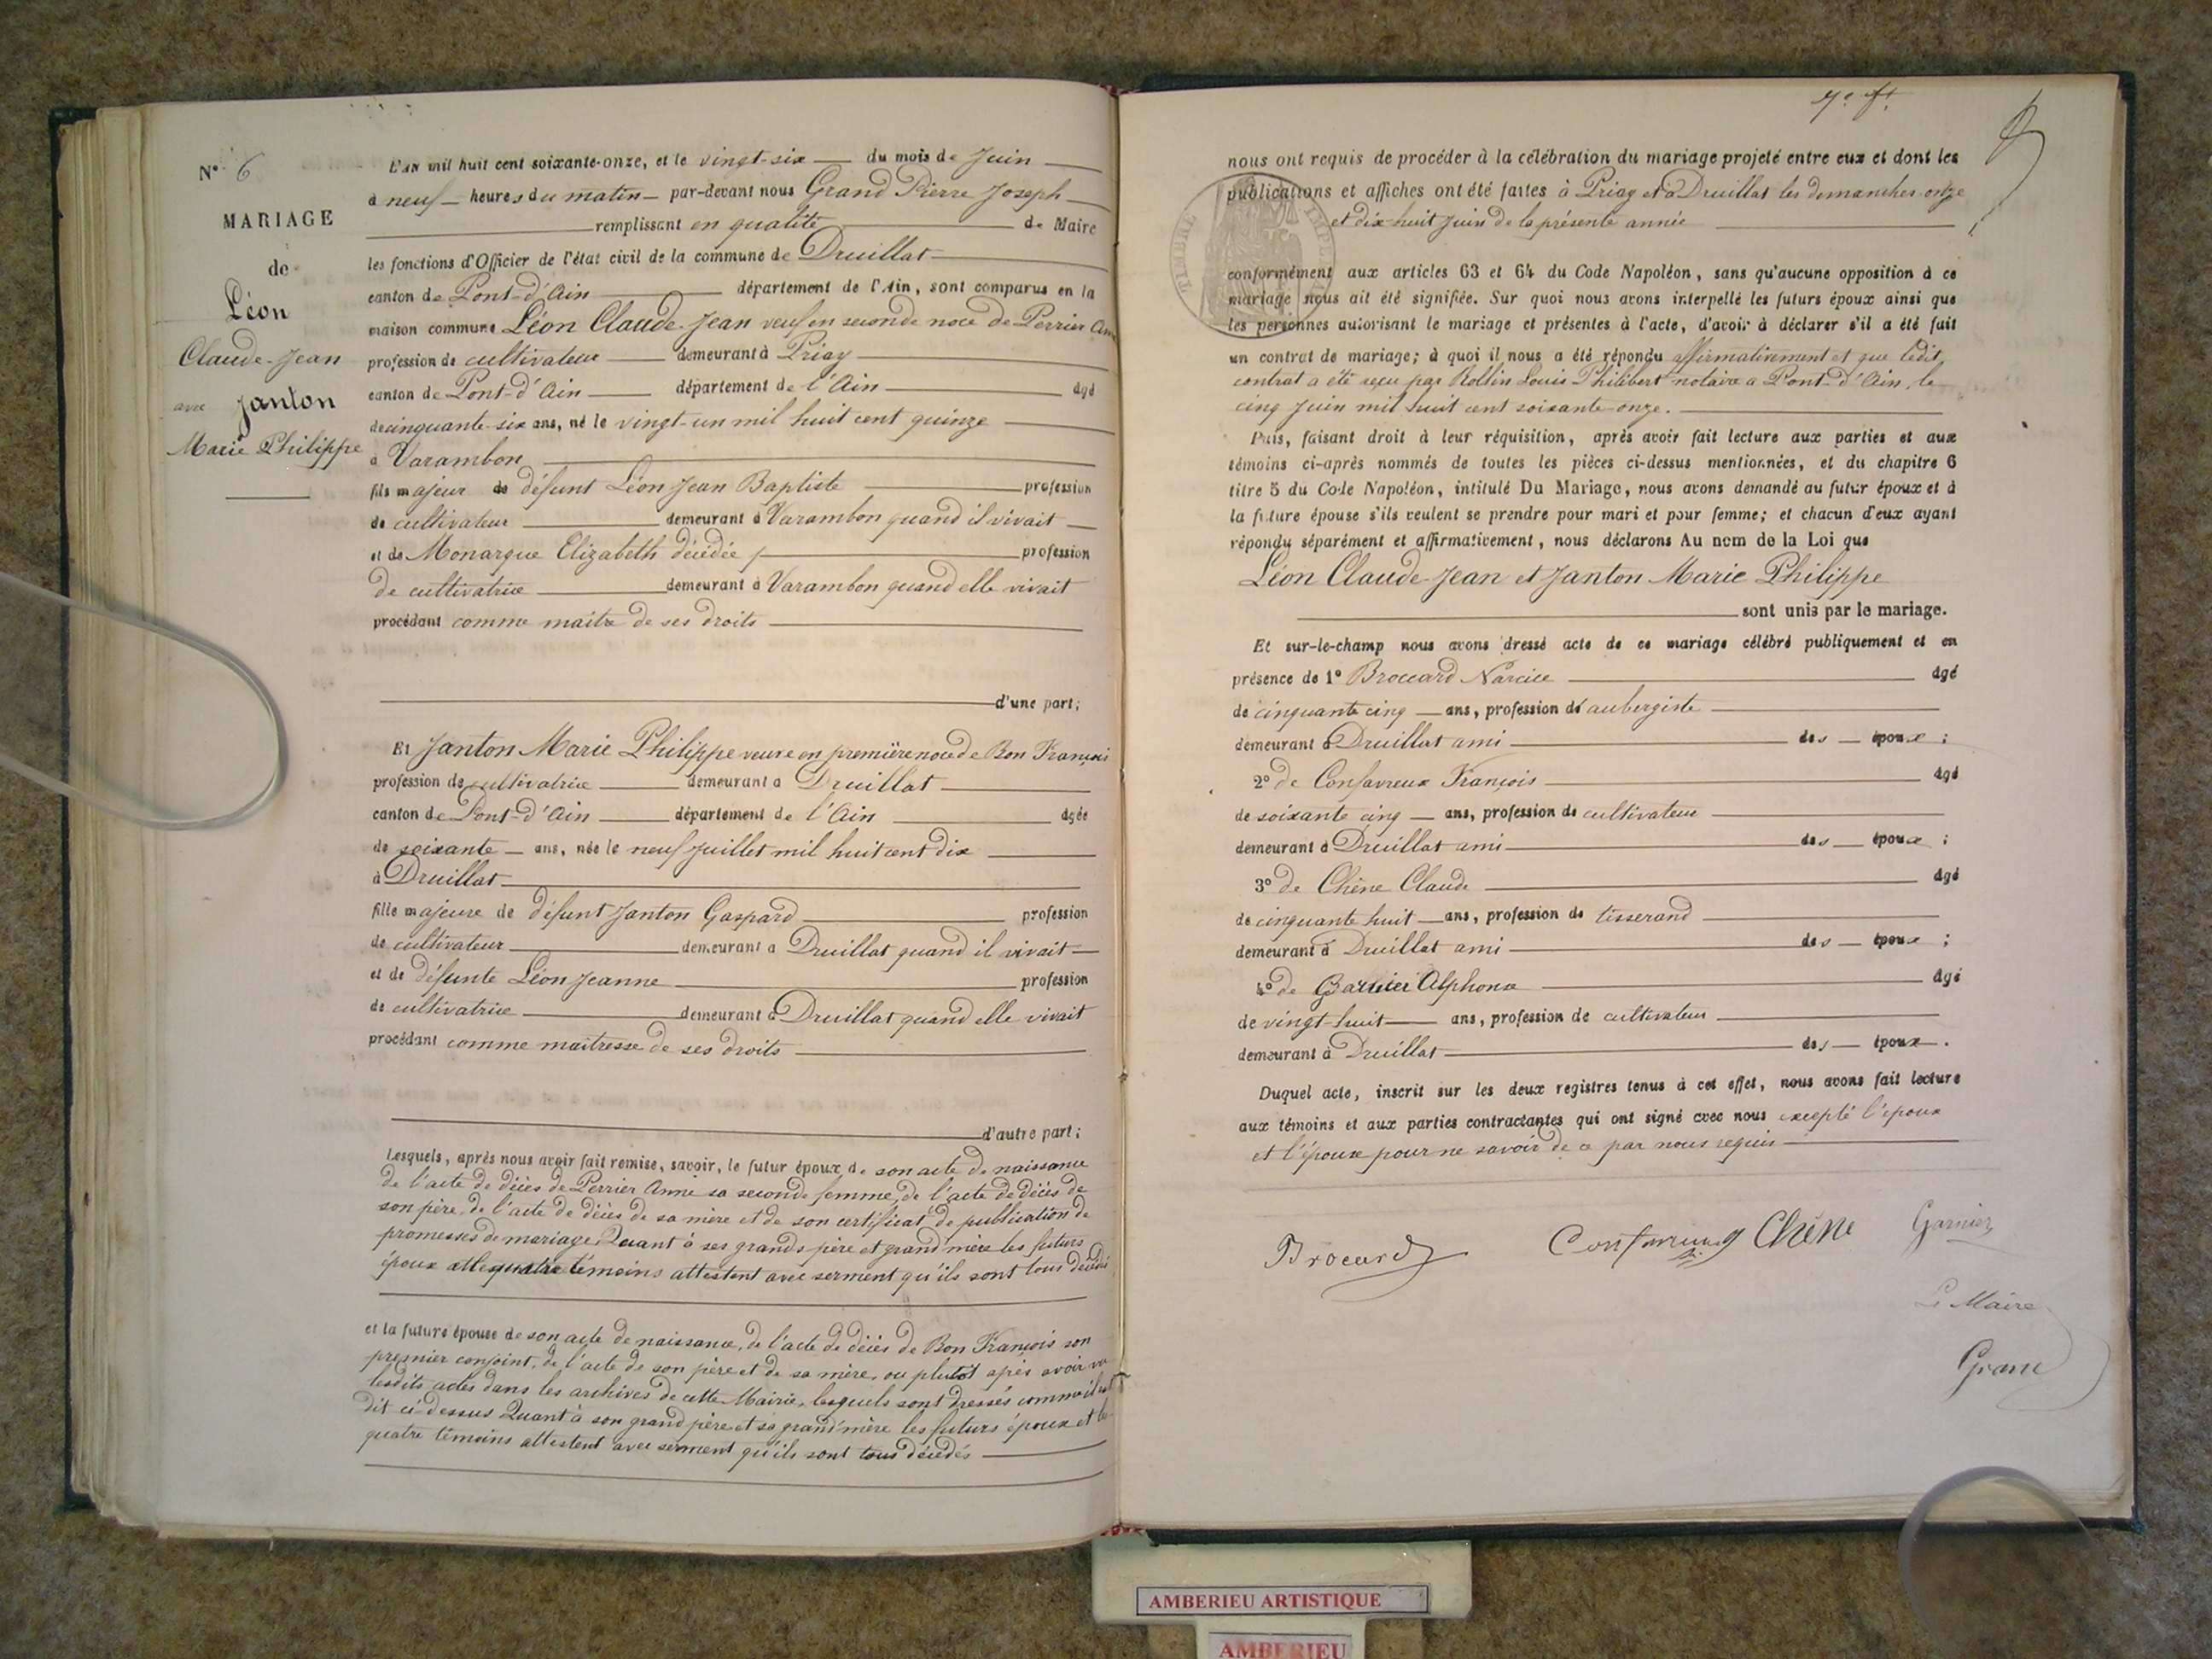 N° 6
MARIAGE
de
Léon
Claude-Jean
avec Janton
Marie Philippe
L'an mil huit cent soixante-onze, et le vingt-six du mois de Juin
à neuf heures du matin par-devant nous Grand Pierre Joseph
remplissant en qualité de Maire
les fonctions d'Officier de l'état civil de la commune de Druillat
canton de Pont-d'Ain département de l'Ain, sont comparus en la
maison commune Léon Claude-Jean veuf en seconde noce de Perrier Ann
profession de cultivateur demeurant à Priay
canton de Pont-d'Ain département de l'Ain âgé
de cinquante-six ans, né le vingt-un mil huit cent quinze
à Varambon
fils majeur de défunt Léon Jean Baptiste profession
de cultivateur demeurant à Varambon quand il vivait
et de Monarque Elizabeth décédée profession
de cultivatrice demeurant à Varambon quand elle vivait
procédant comme maître de ses droits
d'une part;
Et Janton Marie Philippe veuve en première noce de Bon François
profession de cultivatrice demeurant à Druillat
canton de Pont-d'Ain département de l'Ain âgée
de soixante ans, née le neuf Juillet mil huit cent dix
à Druillat
fille majeure de défunt Janton Gaspard profession
de cultivateur demeurant à Druillat quand il vivait
et de défunte Léon Jeanne profession
de cultivatrice demeurant à Druillat quand elle vivait
procédant comme maitresse de ses droits
d'autre part;
Lesquels, après nous avoir fait remise, savoir, le futur époux de son acte de naissance
de l'acte de décès de Perrier Anne sa seconde femme, de l'acte de décès de
son père, de l'acte de décès de sa mère et de son certificat de publication de
promesses de mariage. Quant à ses grands père et grand'mère les futurs
époux et les quatre témoins attestent avec serment qu'ils sont tous décédés
et la future épouse de son acte de naissance, de l'acte de décès de Bon François son
premier conjoint, de l'acte de son père et de sa mère, ou plutôt après avoir vu
lesdits actes dans les archives de cette Mairie, lesquels sont dressés comme il est
dit ci-dessus Quant à son grand père et sa grand'mère les futurs époux et les
quatre témoins attestent avec serment qu'ils sont tous décédés
7e ft.
nous ont requis de procéder à la célébration du mariage projeté entre eux et dont les
publications et affiches ont été faites à Priay et à Druillat les demanches onze
et dix-huit Juin de la présente année
TIMBRE
conformément aux articles 63 et 64 du Code Napoléon, sans qu'aucune opposition à ce
mariage nous ait été signifiée. Sur quoi nous avons interpellé les futurs époux ainsi que
les personnes autorisant le mariage et présentes à l'acte, d'avoir à déclarer s'il a été fait
un contrat de mariage; à quoi il nous a été répondu affirmativement et que ledit
contrat a été reçu par Rollin Louis Philibert notaire a Pont-d'Ain, le
cinq Juin mil huit cent soixante-onze.
Puis, faisant droit à leur réquisition, après avoir fait lecture aux parties et aux
témoins ci-après nommés de toutes les pièces ci-dessus mentionnées, et du chapitre 6
titre 5 du Code Napoléon, intitulé Du Mariage, nous avons demandé au futur époux et à
la future épouse s'ils veulent se prendre pour mari et pour femme; et chacun d'eux ayant
répondu séparément et affirmativement, nous déclarons Au nom de la Loi que
Léon Claude-Jean et Janton Marie Philippe
sont unis par le mariage.
Et sur-le-champ nous avons dressé acte de ce mariage célébré publiquement et en
présence de 1° Broccard Narcice âgé
de cinquante cinq ans, profession d'aubergiste
demeurant à Druillat ami des époux;
2° de Confavreux François âgé
de soixante cinq ans, profession de cultivateur
demeurant à Druillat ami des époux;
3° de Chêne Claude âgé
de cinquante huit ans, profession de tisserand
demeurant à Druillat ami des époux;
4° de Garnier Alphonse âgé
de vingt-huit ans, profession de cultivateur
demeurant à Druillat des époux.
Duquel acte, inscrit sur les deux registres tenus à cet effet, nous avons fait lecture
aux témoins et aux parties contractantes qui ont signé avec nous excepté l'époux
et l'épouse pour ne savoir de ce par nous requis
Brocard Confavreux Chêne Garnier
Le Maire
Grand
AMBERIEU ARTISTIQUE
AMBERIEU